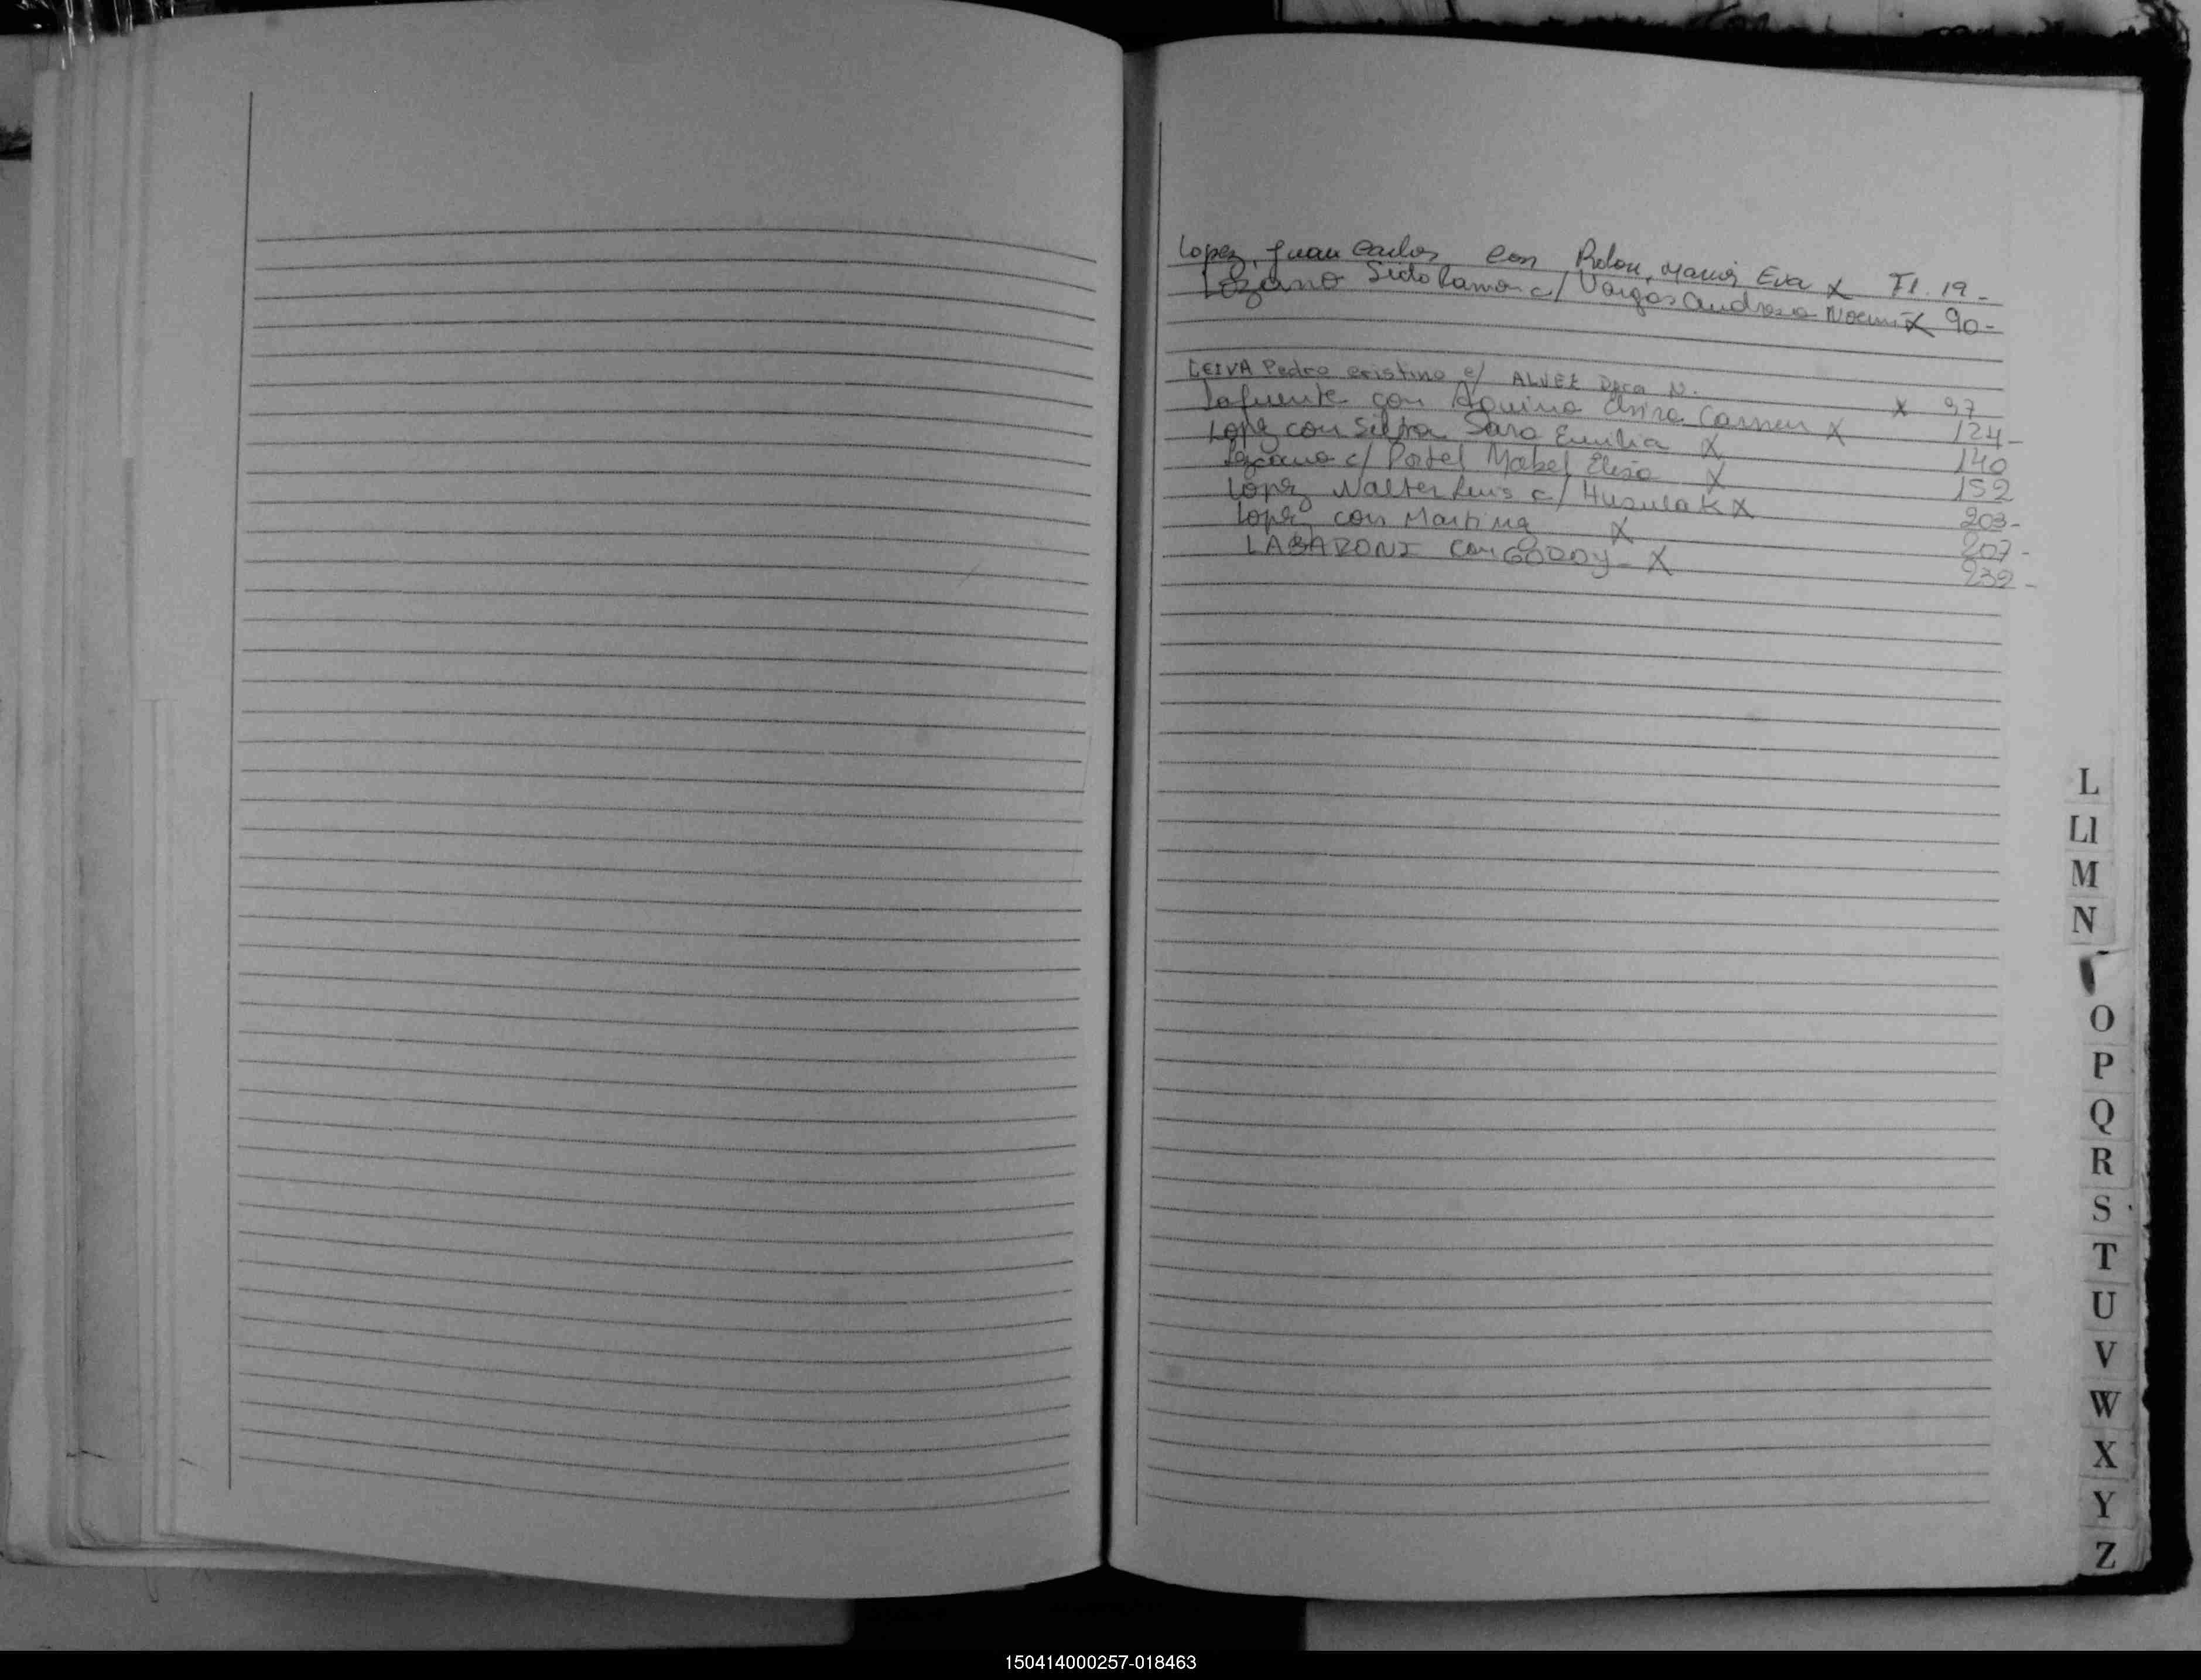 Lopez, Juan Carlos con Rolon, Maria Eva X Fl. 19-
Lezcano Sixto Ramon c/ Vargas Andrea Noemi X 90-
LEIVA Pedro Cristino c/ ALVEZ Dora N. X 97
Lafuente con Aquino Elvira Carmen X 124-
Lopez con Sara Emilia X 140
Lezcano c/ Portel Mabel Elisa X 152
Lopez Walter Luis c/ Husulak X 203-
Lopez con Martina X 207-
LABARONI con GODOY- X 239-
L
Ll
M
N
O
P
Q
R
S
T
U
V
W
X
Y
Z
150414000257-018463